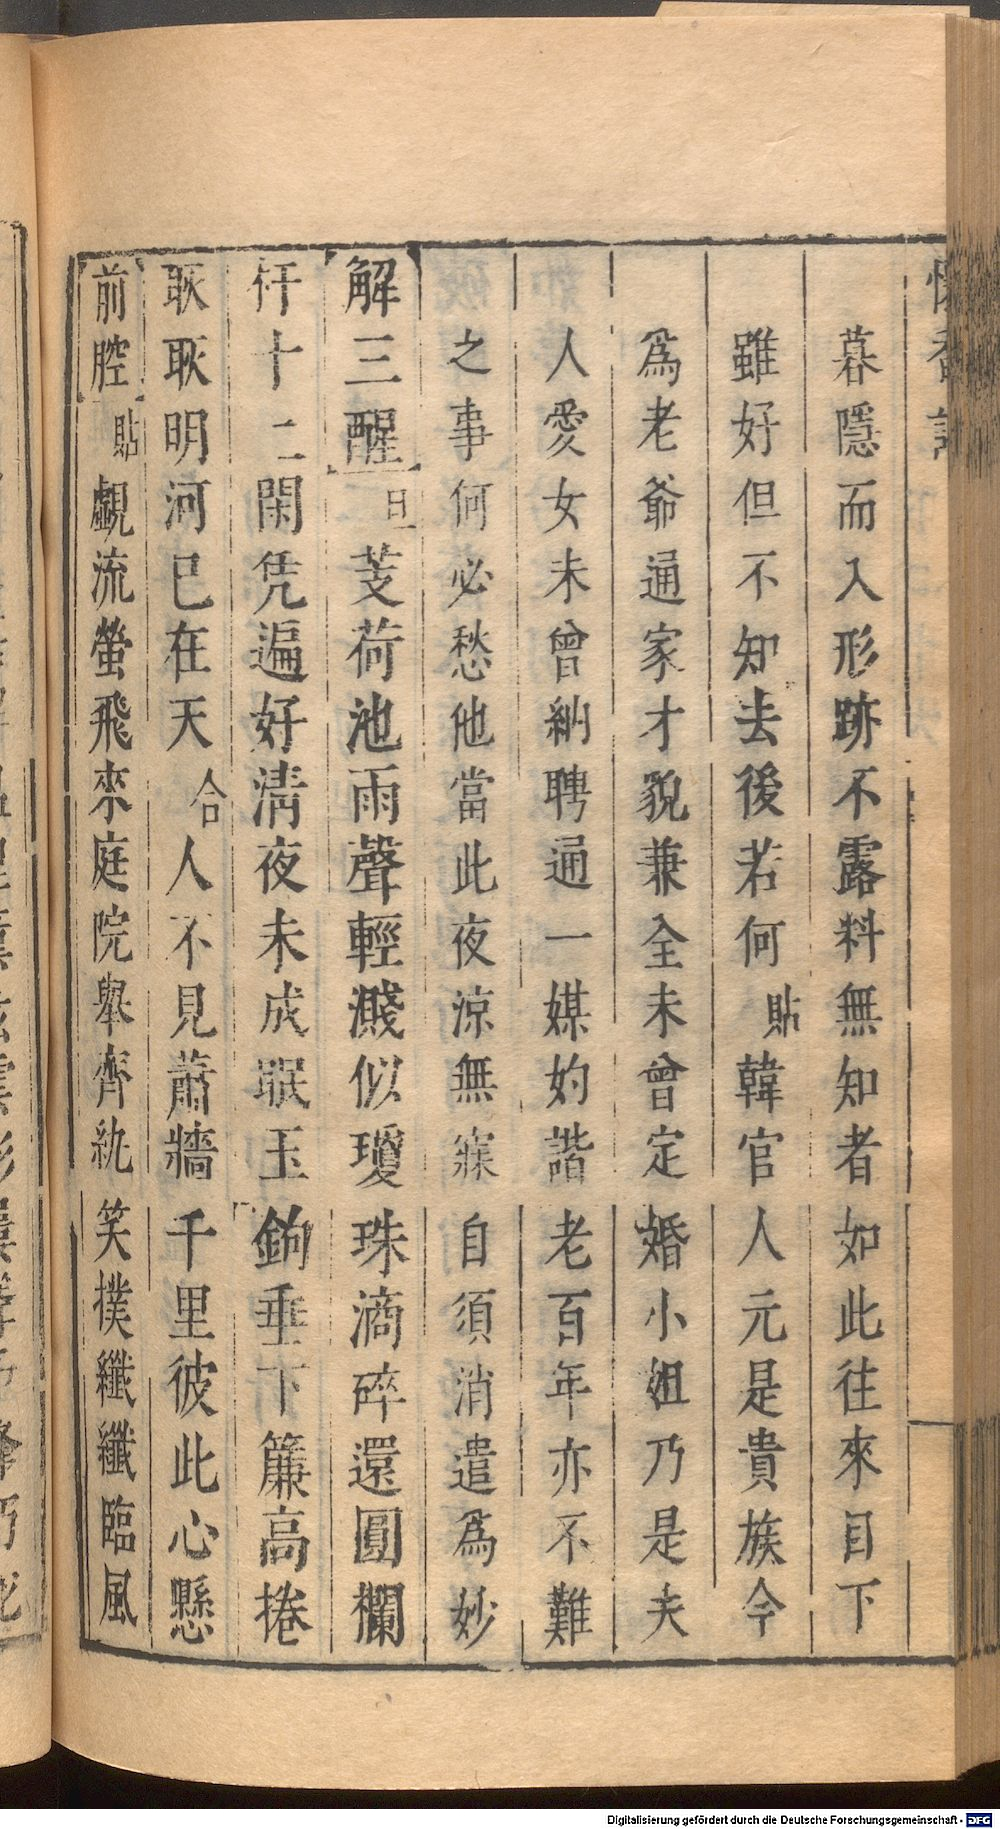 懷香記
暮隱而入形跡不露料無知者如此往來目下
雖好但不知去後若何貼韓官人元是貴族今
爲老爺通家才貌兼全未曾定婚小姐乃是夫
人愛女未曾納聘通一媒妁諧老百年亦不難
之事何必愁他當此夜涼無寐自須消遣爲妙
解三酲旦芰荷池雨聲輕濺似瓊珠滴碎還圓欄
杆十二閑凭遍好清夜未成眠玉鉤垂下簾高捲
耿耿明河已在天合人不見蕭牆千里彼此心懸
前腔貼覷流螢飛來庭院舉齊紈笑撲纖纖臨風
Digitalisierung gefördert durch die Deutsche Forschungsgemeinschaft - DFG